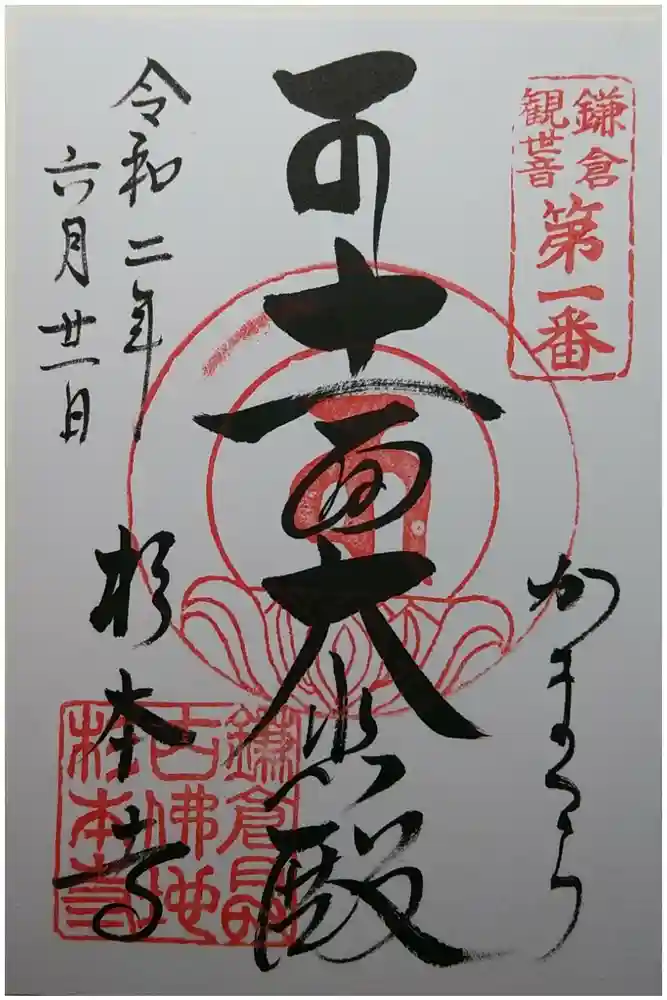 鎌倉
観世音
第一番
かまくら
十一面大悲殿
令和二年
六月廿一日
杉本寺
鎌倉最
古佛地
杉本寺